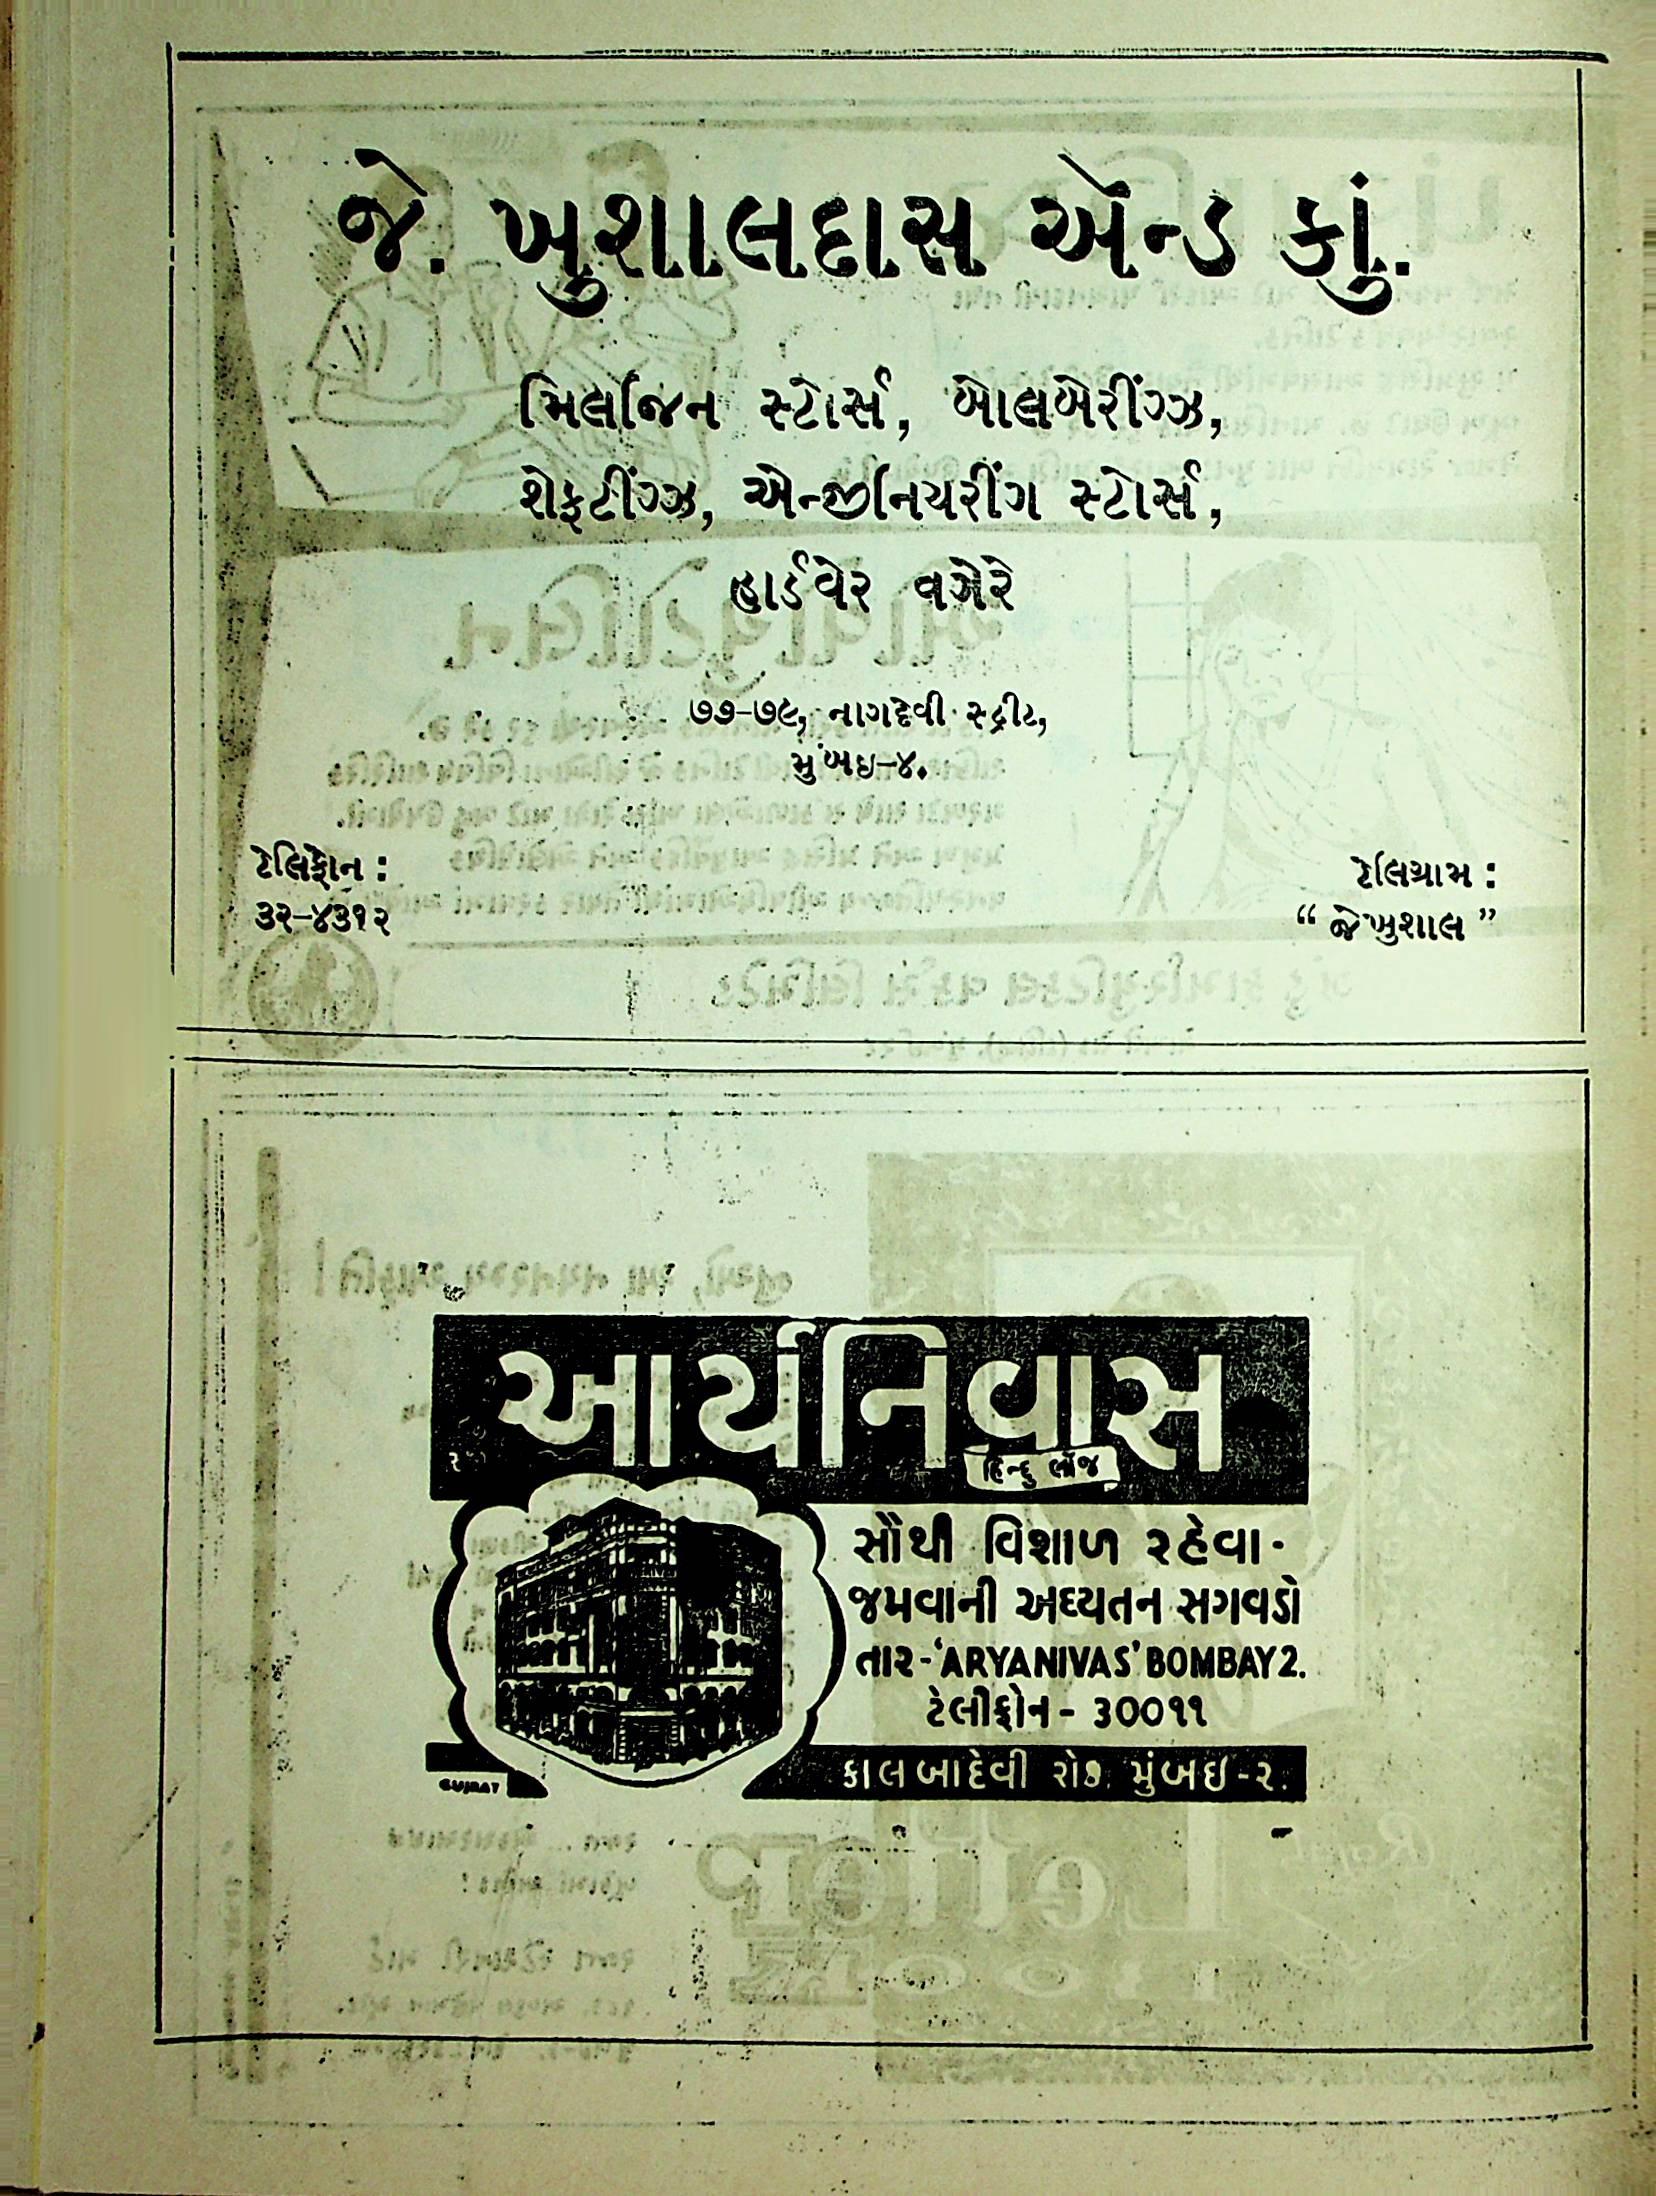 જે. ખુશાલદાસ ઍન્ડ કાું.
મિલજિન સ્ટોર્સ, બોલબેરીંગ્ઝ,
શેફ્ટીંગ્ઝ, એન્જીનિયરીંગ સ્ટોર્સ,
હાર્ડવેર વગેરે
૭૭-૭૯, નાગદેવી સ્ટ્રીટ,
મુંબઇ-૪.
ટેલિફોન :
૩૨-૪૩૧૨
ટેલિગ્રામ :
“ જેખુશાલ ”
આર્યનિવાસ
હિન્દુ લૉજ
સૌથી વિશાળ રહેવા-
જમવાની અદ્યતન સગવડો
તાર-‘ARYANIVAS’ BOMBAY 2.
ટેલીફોન - ૩૦૦૧૧
કાલબાદેવી રોડ મુંબઇ-૨.
GUJRAT